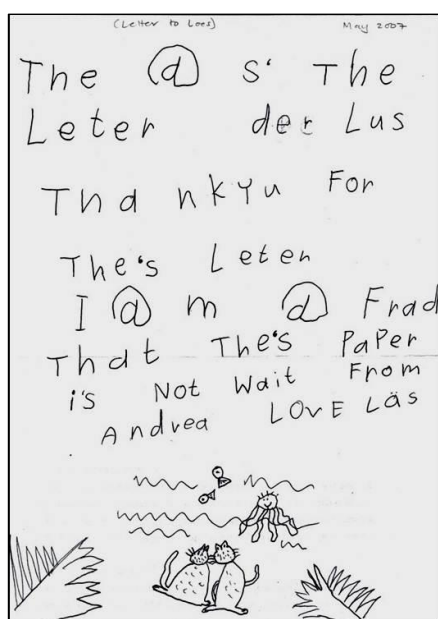 (Letter to Loes) May 2007
The @ s' The
Leter der Lus
Tha nkYu For
The's Leter
I @ m @ Frad
That The's PaPer
i's Not Wait From
Andrea LOvE Läs